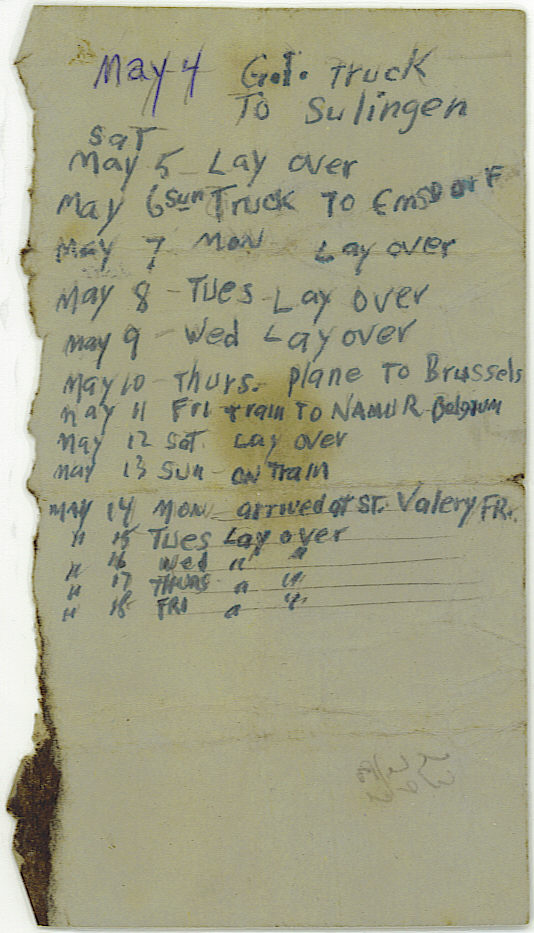 May 4 G.I. Truck
To Sulingen
Sat
May 5 Lay over
May 6 Sun Truck To Emsdorf
May 7 Mon Lay over
May 8 - Tues Lay over
May 9 - Wed Lay over
May 10 - Thurs. Plane To Brussels
May 11 Fri train To NAMUR - Belgium
May 12 Sat. Lay over
May 13 Sun - on Train
May 14 Mon arrived at St. Valery FR.
" 15 Tues Lay over
" 16 Wed " "
" 17 Thurs " "
" 18 FRI " "